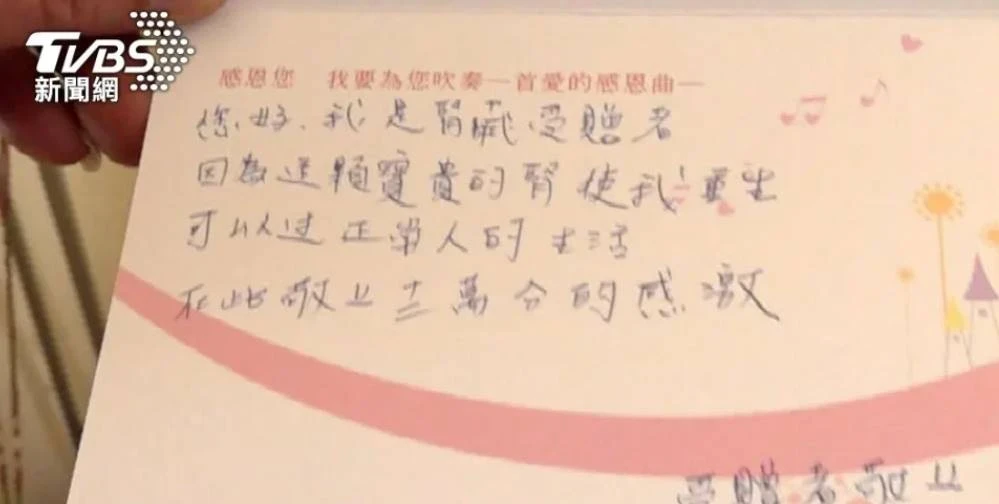 TVBS
新聞網
感恩您 我要為您吹奏一首愛的感恩曲—
您好、我是腎臟受贈者
因為這顆寶貴的腎使我重生
可以过正常人的生活
在此敬上十二萬分的感激
受贈者敬上